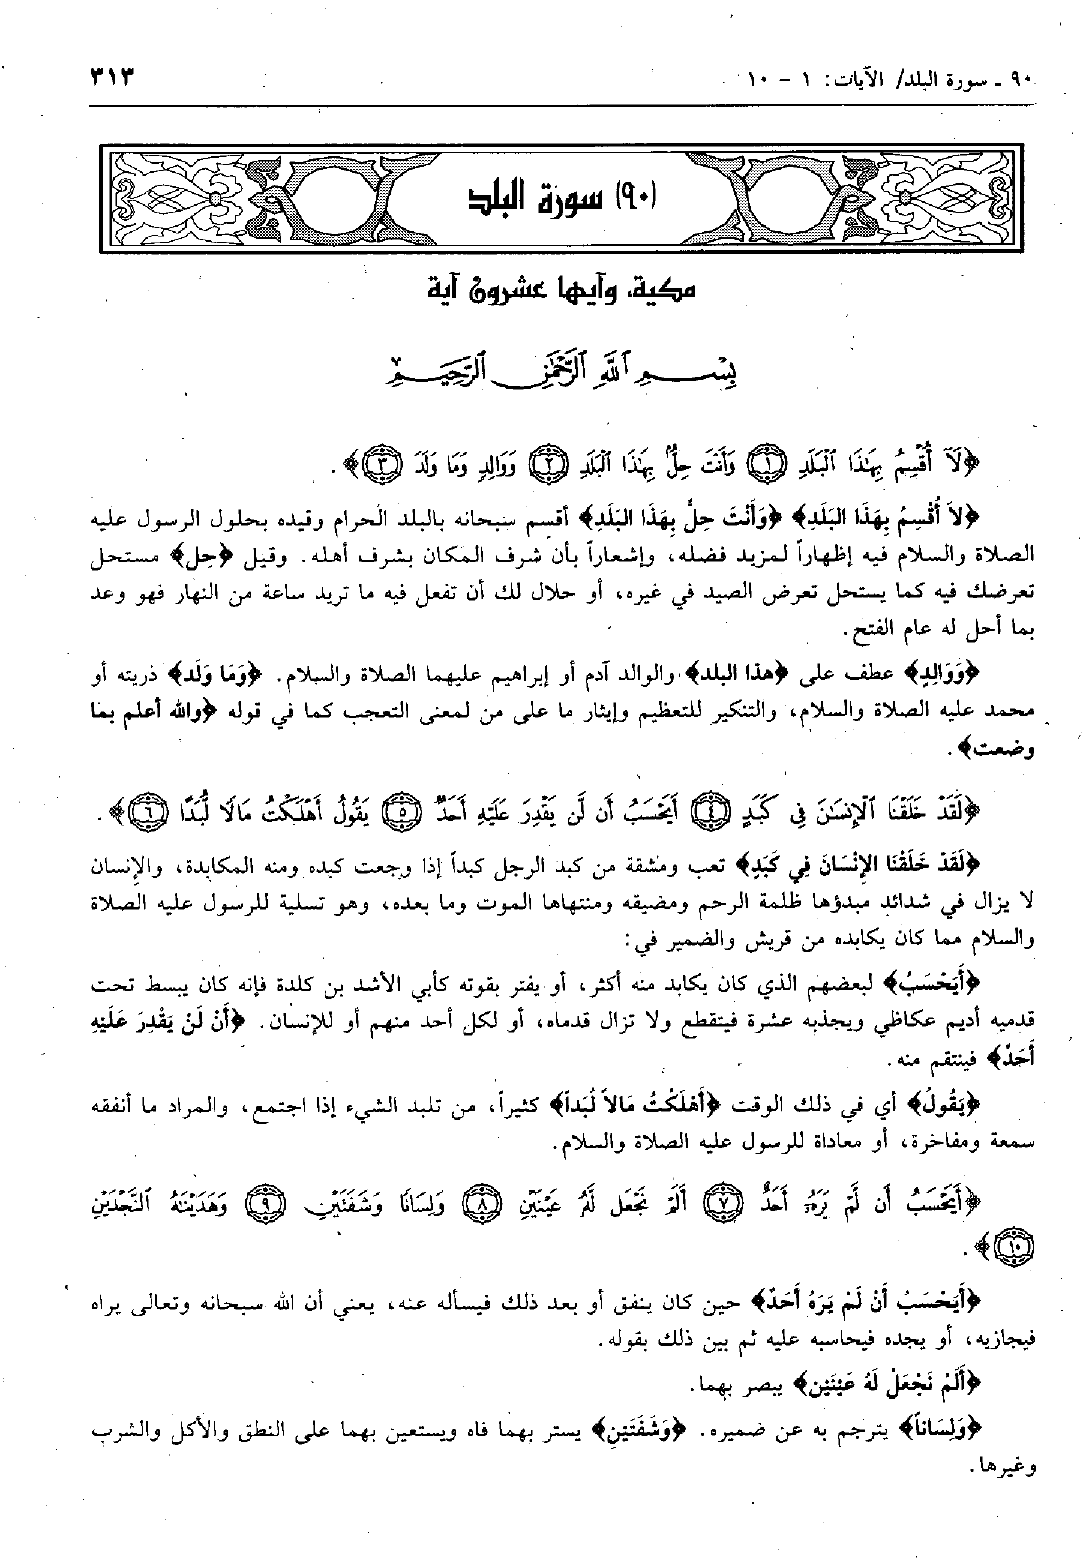 ٩٠ ـ سورة البلد/ الآيات: ١ - ١٠
٣١٣
(٩٠) سورة البلد
مكية، وآيها عشرون آية
بِسْمِ ٱللَّهِ ٱلرَّحْمَٰنِ ٱلرَّحِيمِ
﴿لَآ أُقْسِمُ بِهَٰذَا ٱلْبَلَدِ ١ وَأَنتَ حِلٌّ بِهَٰذَا ٱلْبَلَدِ ٢ وَوَالِدٍ وَمَا وَلَدَ ٣﴾.
﴿لاَ أُقْسِمُ بِهَذَا البَلَدِ﴾ ﴿وَأَنْتَ حِلٌّ بِهَذَا البَلَدِ﴾ أقسم سبحانه بالبلد الحرام وقيده بحلول الرسول عليه
الصلاة والسلام فيه إظهاراً لمزيد فضله، وإشعاراً بأن شرف المكان بشرف أهله. وقيل ﴿حِل﴾ مستحل
تعرضك فيه كما يستحل تعرض الصيد في غيره، أو حلال لك أن تفعل فيه ما تريد ساعة من النهار فهو وعد
بما أحل له عام الفتح.
﴿وَوَالِدٍ﴾ عطف على ﴿هذا البلد﴾ والوالد آدم أو إبراهيم عليهما الصلاة والسلام. ﴿وَمَا وَلَد﴾ ذريته أو
محمد عليه الصلاة والسلام، والتنكير للتعظيم وإيثار ما على من لمعنى التعجب كما في قوله ﴿والله أعلم بما
وضعت﴾.
﴿لَقَدْ خَلَقْنَا ٱلْإِنسَٰنَ فِى كَبَدٍ ٤ أَيَحْسَبُ أَن لَّن يَقْدِرَ عَلَيْهِ أَحَدٌ ٥ يَقُولُ أَهْلَكْتُ مَالًا لُّبَدًا ٦﴾.
﴿لَقَدْ خَلَقْنَا الإِنْسَانَ فِي كَبَدٍ﴾ تعب ومشقة من كبد الرجل كبداً إذا وجعت كبده ومنه المكابدة، والإِنسان
لا يزال في شدائد مبدؤها ظلمة الرحم ومضيقه ومنتهاها الموت وما بعده، وهو تسلية للرسول عليه الصلاة
والسلام مما كان يكابده من قريش والضمير في:
﴿أَيَحْسَبُ﴾ لبعضهم الذي كان يكابد منه أكثر، أو يفتر بقوته كأبي الأشد بن كلدة فإنه كان يبسط تحت
قدميه أديم عكاظي ويجذبه عشرة فيتقطع ولا تزال قدماه، أو لكل أحد منهم أو للإنسان. ﴿أَنْ لَنْ يَقْدِرَ عَلَيْهِ
أَحَدٌ﴾ فينتقم منه.
﴿يَقُولُ﴾ أي في ذلك الوقت ﴿أَهْلَكْتُ مَالاً لُبَداً﴾ كثيراً، من تلبد الشيء إذا اجتمع، والمراد ما أنفقه
سمعة ومفاخرة، أو معاداة للرسول عليه الصلاة والسلام.
﴿أَيَحْسَبُ أَن لَّمْ يَرَهُۥٓ أَحَدٌ ٧ أَلَمْ نَجْعَل لَّهُۥ عَيْنَيْنِ ٨ وَلِسَانًا وَشَفَتَيْنِ ٩ وَهَدَيْنَٰهُ ٱلنَّجْدَيْنِ
١٠﴾.
﴿أَيَحْسَبُ أَنْ لَمْ يَرَهُ أَحَدٌ﴾ حين كان ينفق أو بعد ذلك فيسأله عنه، يعني أن الله سبحانه وتعالى يراه
فيجازيه، أو يجده فيحاسبه عليه ثم بين ذلك بقوله.
﴿أَلَمْ نَجْعَلْ لَهُ عَيْنَيْنِ﴾ يبصر بهما.
﴿وَلِسَاناً﴾ يترجم به عن ضميره. ﴿وَشَفَتَيْنِ﴾ يستر بهما فاه ويستعين بهما على النطق والأكل والشرب
وغيرها.